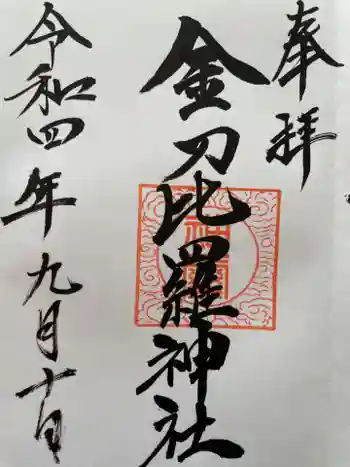 奉拝
金刀比羅神社
令和四年九月十日